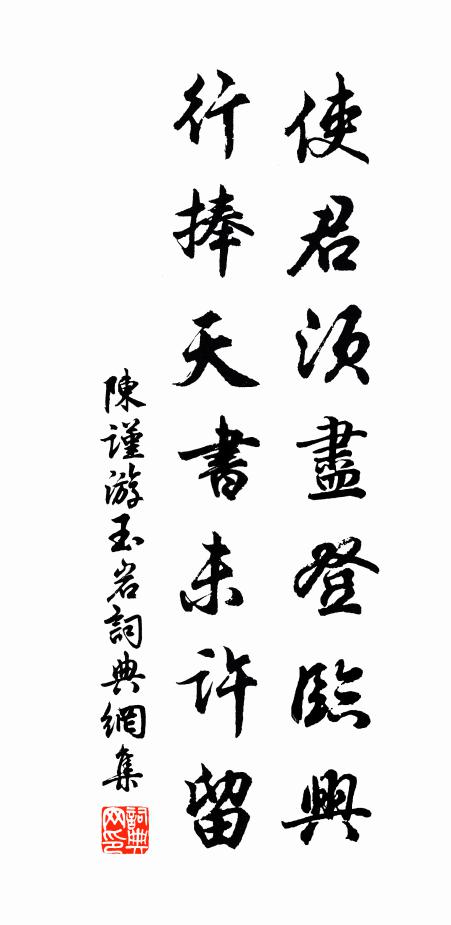 使君須盡登臨興
行捧天書未許留
陳謹游玉岩詞典網集
詞典
网印